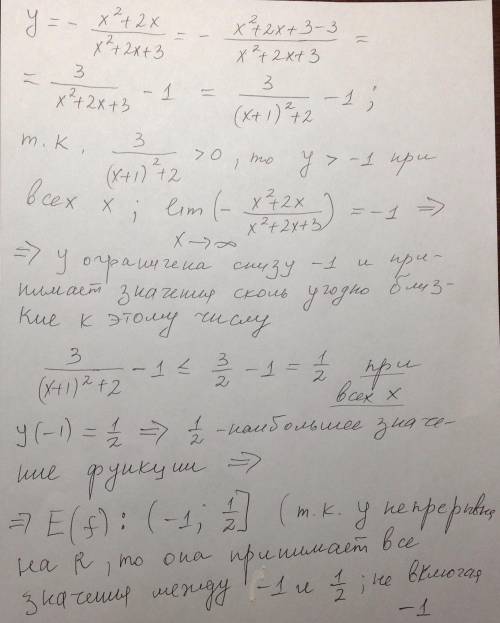 y = - \frac{x^2+2x}{x^2+2x+3} = - \frac{x^2+2x+3-3}{x^2+2x+3} =
= \frac{3}{x^2+2x+3} - 1 = \frac{3}{(x+1)^2+2} - 1 ;
т.к. \frac{3}{(x+1)^2+2} > 0, то y > -1 при
всех x ; \lim_{x \to \infty} (- \frac{x^2+2x}{x^2+2x+3}) = -1 ⇒
⇒ y ограничена снизу -1 и при-
нимает значения сколь угодно близ-
кие к этому числу
\frac{3}{(x+1)^2+2} - 1 ≤ \frac{3}{2} - 1 = \frac{1}{2} при
всех x
y(-1) = \frac{1}{2} ⇒ \frac{1}{2} - наибольшее значе-
ние функции ⇒
⇒ E(f): (-1; \frac{1}{2}] (т.к. y непрерывна
на R, то она принимает все
значения между -1 и \frac{1}{2}; не включая
-1